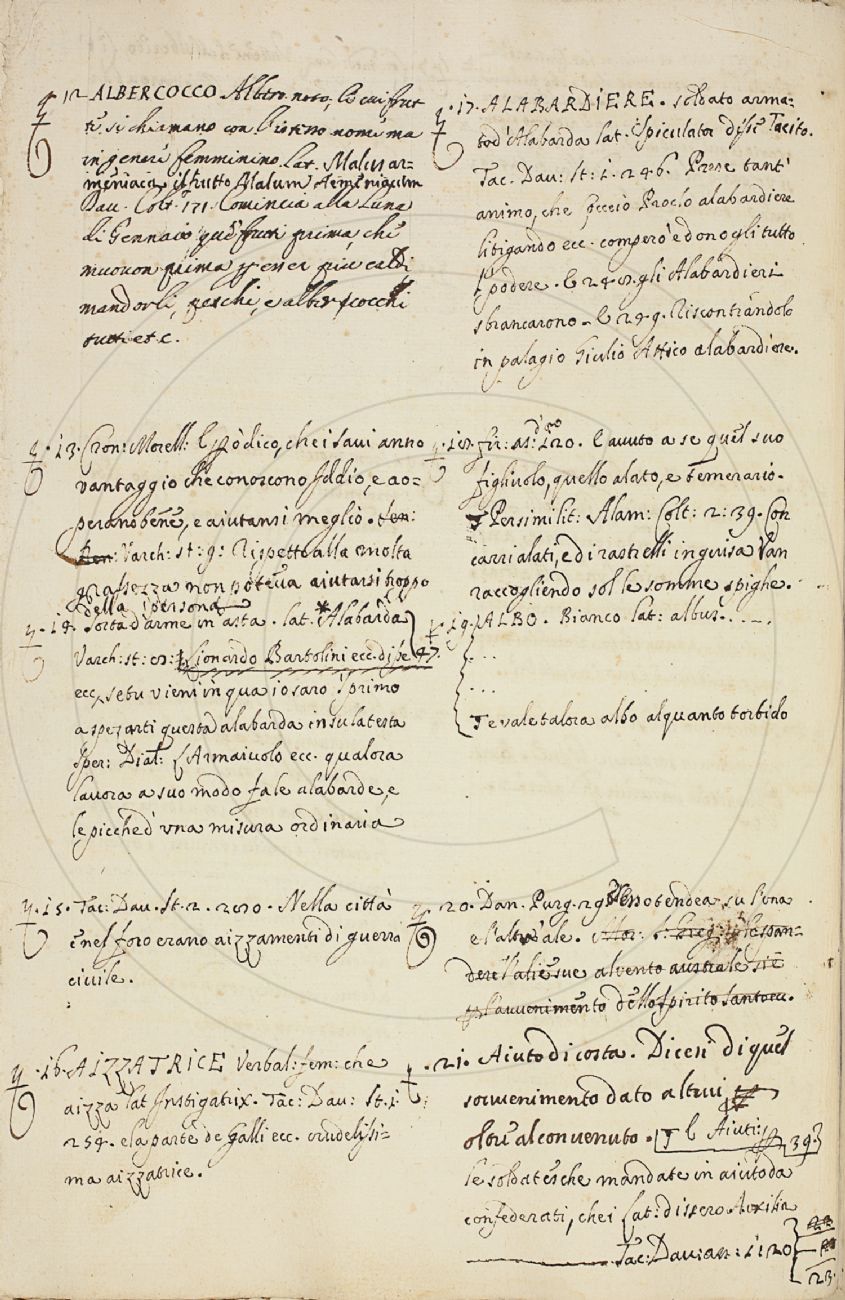 12 ALBERCOCCO Albero noto, le cui frut
te si chiamano con l'istesso nome ma
in genere femminino. Lat. Malus ar-
meniaca, il frutto Malum Armeniacum
Dav. Colt. 171. Comincia alla Luna
di Gennaio frutti prima che
muovon prima p esser più caldi
mandorli, peschi, e albercocchi
tutti etc.
13. Cron: Morell: l ppòdico, che i savi anno
vantaggio che conoscono Iddio, e ao-
perano bene, e aiutansi meglio.
Varch: st: 9: Rispetto alla molta
grassezza non poteva aiutarsi troppo
della persona
14. Sorta d'arme in asta. lat. *Alabarda
Varch: st: Lionardo Bartolini ecc. di pe 47.
ecc, se tu vieni in qua io saro 'l primo
a spezarti questa alabarda in su la testa
Sper: Dial: L'Armaiuolo ecc. qualora
lavora a suo modo fa le alabarde, e
le picche d'una misura ordinaria
15. Tac: Dav. St. 2. Nella città
e nel foro erano aizzamenti di guerra
civile.
16. AIZZATRICE Verbal: fem: che
aizza lat Instigatrix. Tac: Dav: St. 1
254. e la parte de Galli ecc. crudelissi-
ma aizzatrice.
17. ALABARDIERE. soldato arma-
to d'Alabarda lat. Spiculator disse Tacito.
Tac. Dav: St: 1. 246. Prese tant'
animo, che Proclo alabardiere
litigando ecc. comperò e donogli tutto
'l podere. E gli Alabardieri
sbrancarono. E 249. Riscontrándolo
in palagio Giulio Attico alabardiere.
18. Fir: as: 120. l avuto a se quel suo
figliuolo, quello alato, e temerario.
Persimilit: Alam: Colt: 2: 39. Con
carri alati, e di rastrelli in guisa Van
raccogliendo sol le somme spighe.
19. ALBO. Bianco lat: albus.
...
...
vale talora albo alquanto torbido
20. Dan. Purg. 29 Esso tendea su l'una
e l'altr'ale. Mor: S. Greg: 
dere l'alie sue al vento australe si è
l'avvenimento dello Spirito Santo ecc.
21. Aiuto di costa. Dicesi di quel
sovvenimento dato altrui
oltre al convenuto. l Aiuti: 39
le soldatesche mandate in aiuto da
confederati, che i Lat: dissero Auxilia
Tac: Dav: an: 1: 120.
23.